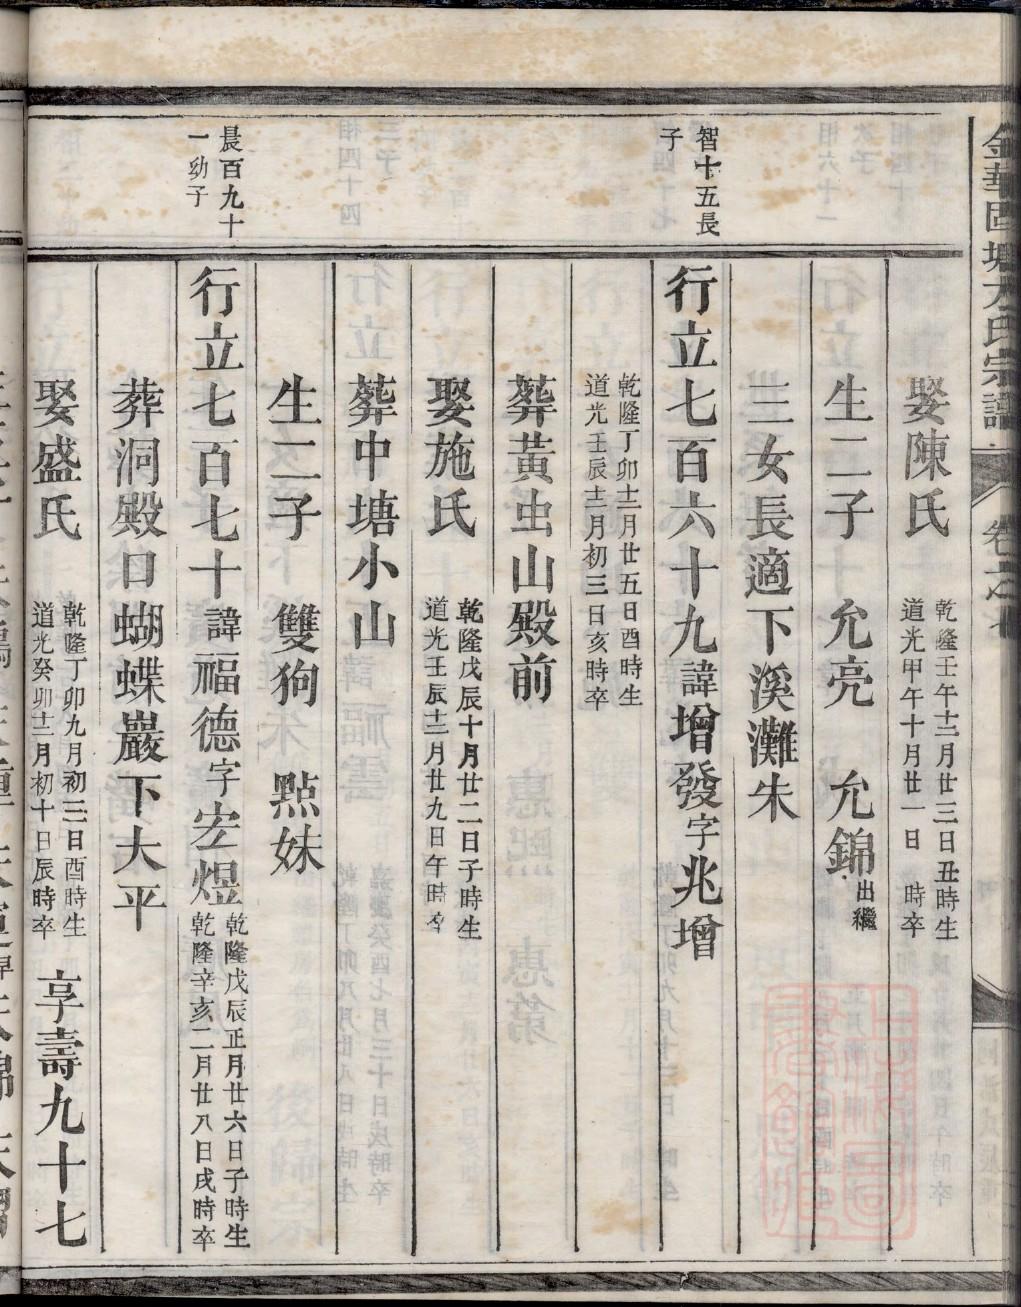 娶陳氏
乾隆壬午十二月廿三日丑時生
道光甲午十月廿一日　時卒
生二子　允亮　允錦出繼
三女長適下溪灘朱
智十五長
子
行立七百六十九諱增發字兆增
乾隆丁卯十二月廿五日酉時生
道光壬辰十二月初三日亥時卒
葬黃虫山殿前
娶施氏
乾隆戊辰十月廿二日子時生
道光壬辰十二月廿九日午時卒
葬中塘小山
生二子　雙狗　點妹
晨百九十
一幼子
行立七百七十諱福德字宏煜
乾隆戊辰正月廿六日子時生
乾隆辛亥二月廿八日戌時卒
葬洞殿口蝴蝶巖下大平
娶盛氏
乾隆丁卯九月初三日酉時生
道光癸卯十二月初十日辰時卒
享壽九十七